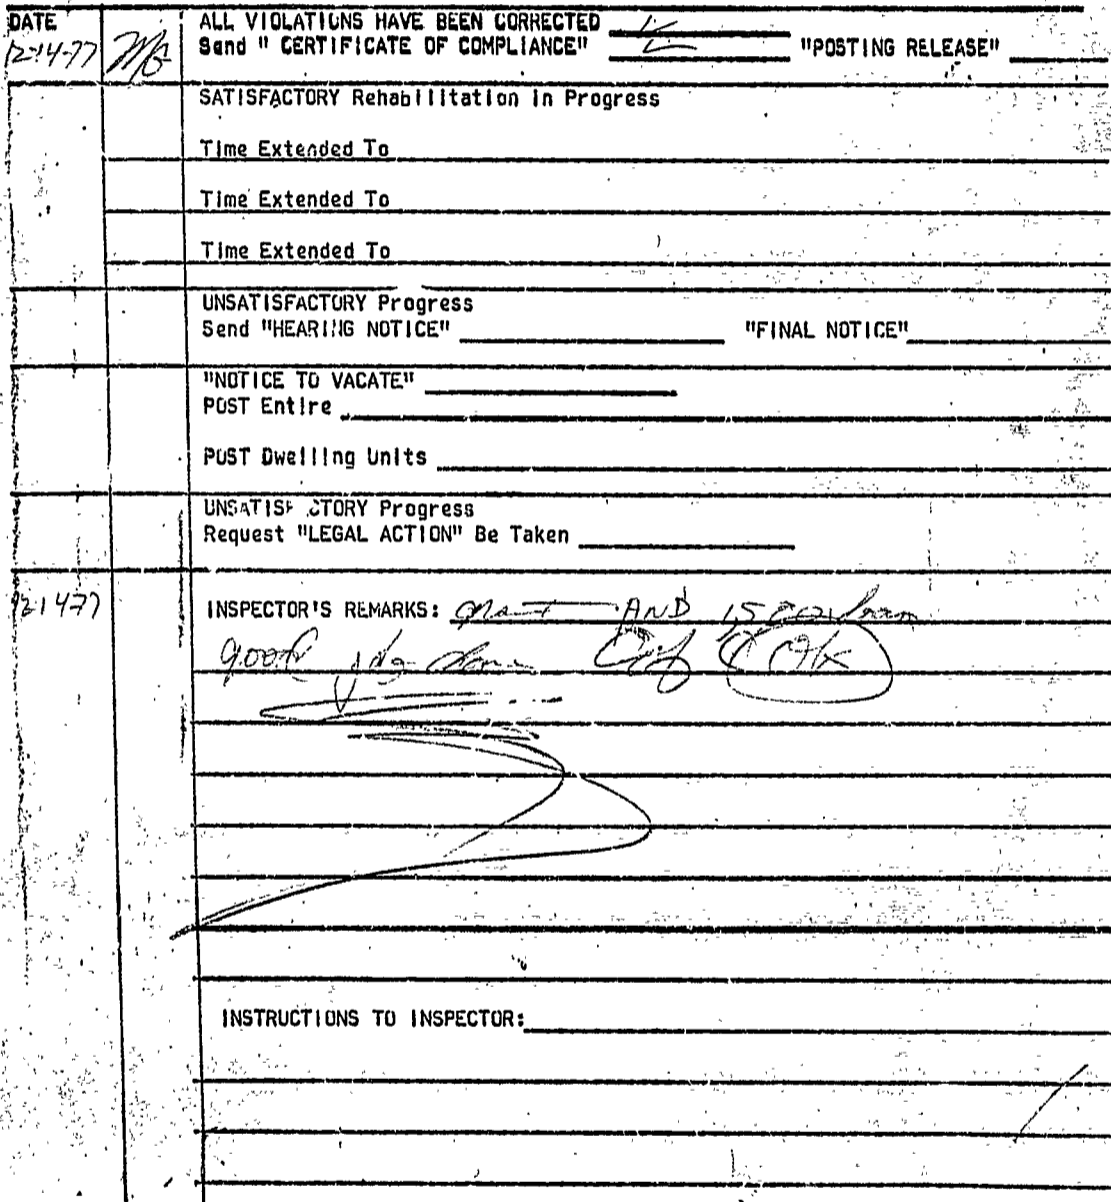 DATE
ALL VIOLATIONS HAVE BEEN CORRECTED
12-14-77 MG Send " CERTIFICATE OF COMPLIANCE" "POSTING RELEASE"
SATISFACTORY Rehabilitation in Progress
Time Extended To
Time Extended To
Time Extended To
UNSATISFACTORY Progress
Send "HEARING NOTICE" "FINAL NOTICE"
"NOTICE TO VACATE"
POST Entire
POST Dwelling Units
UNSATISF CTORY Progress
Request "LEGAL ACTION" Be Taken
12-14-77 INSPECTOR'S REMARKS: AND
good job done OK
INSTRUCTIONS TO INSPECTOR: